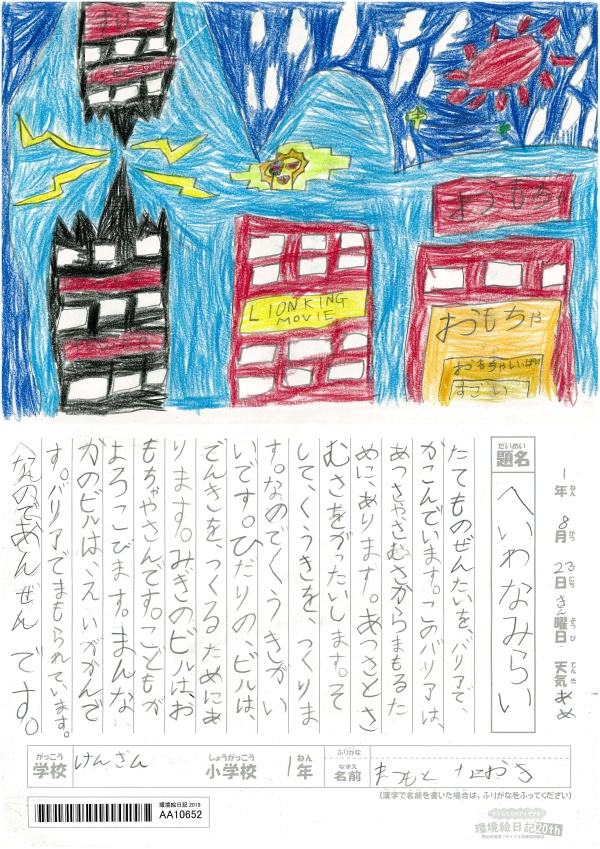 おもちゃ
LION KING
MOVIE
おもちゃ
おもちゃいっぱい
すごい
1年 8月 23日 きん曜日 天気 あめ
ねん がつ にち ようび てんき
だいめい
題名
へいわなみらい
たてものぜんたいを、バリアで、
かこんでいます。このバリアは、
あっさやさむさからまもるた
めに、あります。あっさとさ
むさをがったいします。そ
して、くうきを、つくりま
す。なのでくうきがい
いです。ひだりの、ビルは、
でんきを、つくるためにあ
ります。みぎのビルは、お
もちゃやさんです。こどもが
よろこびます。まんな
かのビルは、えいがかんで
す。バリアでまもられています。
なのであんぜんです。
がっこう しょうがっこう ねん ふりがな
学校 けんざん 小学校 1年
なまえ
名前 まつもと なおき
(漢字で名前を書いた場合は、ふりがなをふってください)
環境絵日記 2019
AA10652
環境絵日記 20th